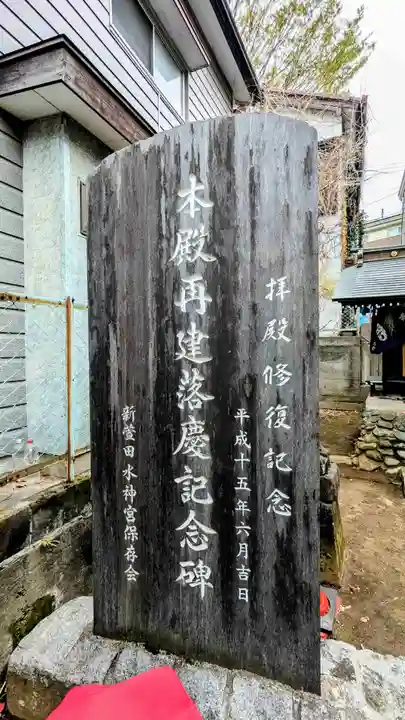 拝殿修復記念
平成十五年六月吉日
本殿再建落慶記念碑
新萱田水神宮保存会